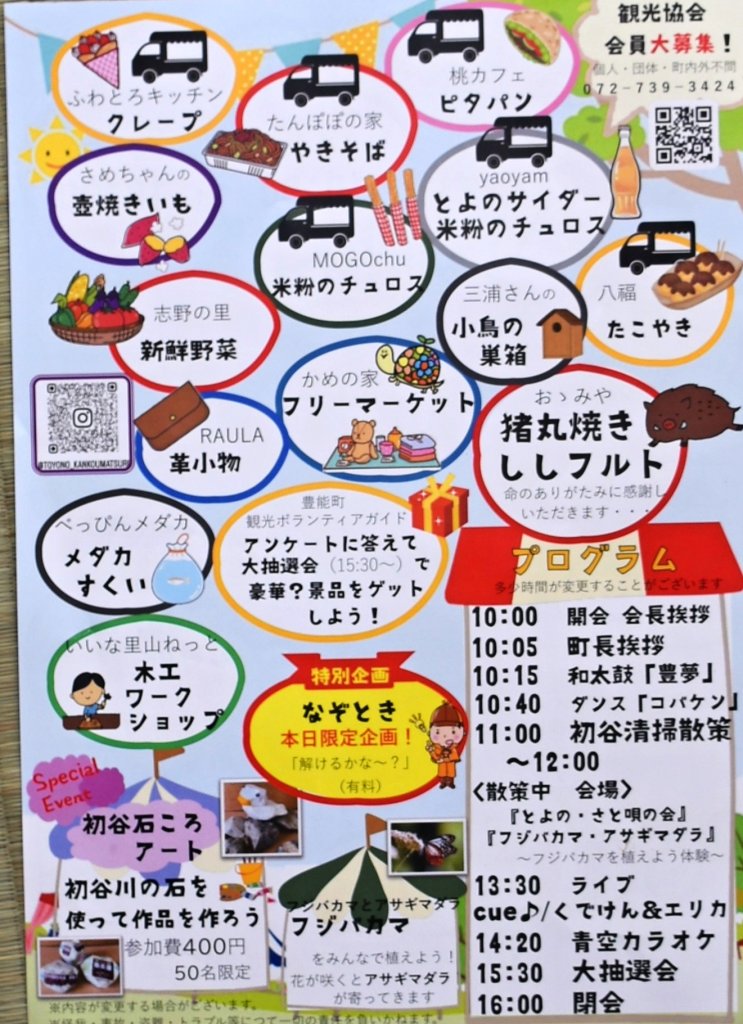 観光協会
会員大募集！
個人・団体・町内外不問
072-739-3424
ふわとろキッチン
クレープ
たんぽぽの家
やきそば
桃カフェ
ピタパン
さめちゃんの
壺焼きいも
yaoyam
とよのサイダー
米粉のチュロス
MOGOchu
米粉のチュロス
志野の里
新鮮野菜
三浦さんの
小鳥の
巣箱
八福
たこやき
@TOYONO_KANKOUMATSURI
RAULA
革小物
かめの家
フリーマーケット
おゝみや
猪丸焼き
ししフルト
命のありがたみに感謝し
いただきます・・・
べっぴんメダカ
メダカ
すくい
豊能町
観光ボランティアガイド
アンケートに答えて
大抽選会（15:30～）で
豪華？景品をゲット
しよう！
いいな里山ねっと
木工
ワーク
ショップ
特別企画
なぞとき
本日限定企画！
「解けるかな～？」
（有料）
プログラム
多少時間が変更することがございます
10:00 開会 会長挨拶
10:05 町長挨拶
10:15 和太鼓『豊夢』
10:40 ダンス『コバケン』
11:00 初谷清掃散策
～12:00
＜散策中 会場＞
『とよの・さと唄の会』
『フジバカマ・アサギマダラ』
～フジバカマを植えよう体験～
13:30 ライブ
cue♪/くでけん&エリカ
14:20 青空カラオケ
15:30 大抽選会
16:00 閉会
Special
Event
初谷石ころ
アート
初谷川の石を
使って作品を作ろう
参加費400円
50名限定
フジバカマとアサギマダラ
フジバカマ
をみんなで植えよう！
花が咲くとアサギマダラ
が寄ってきます
※内容が変更する場合がございます。
※怪我・事故・盗難・トラブル等につて一切の責任を負いかねます。